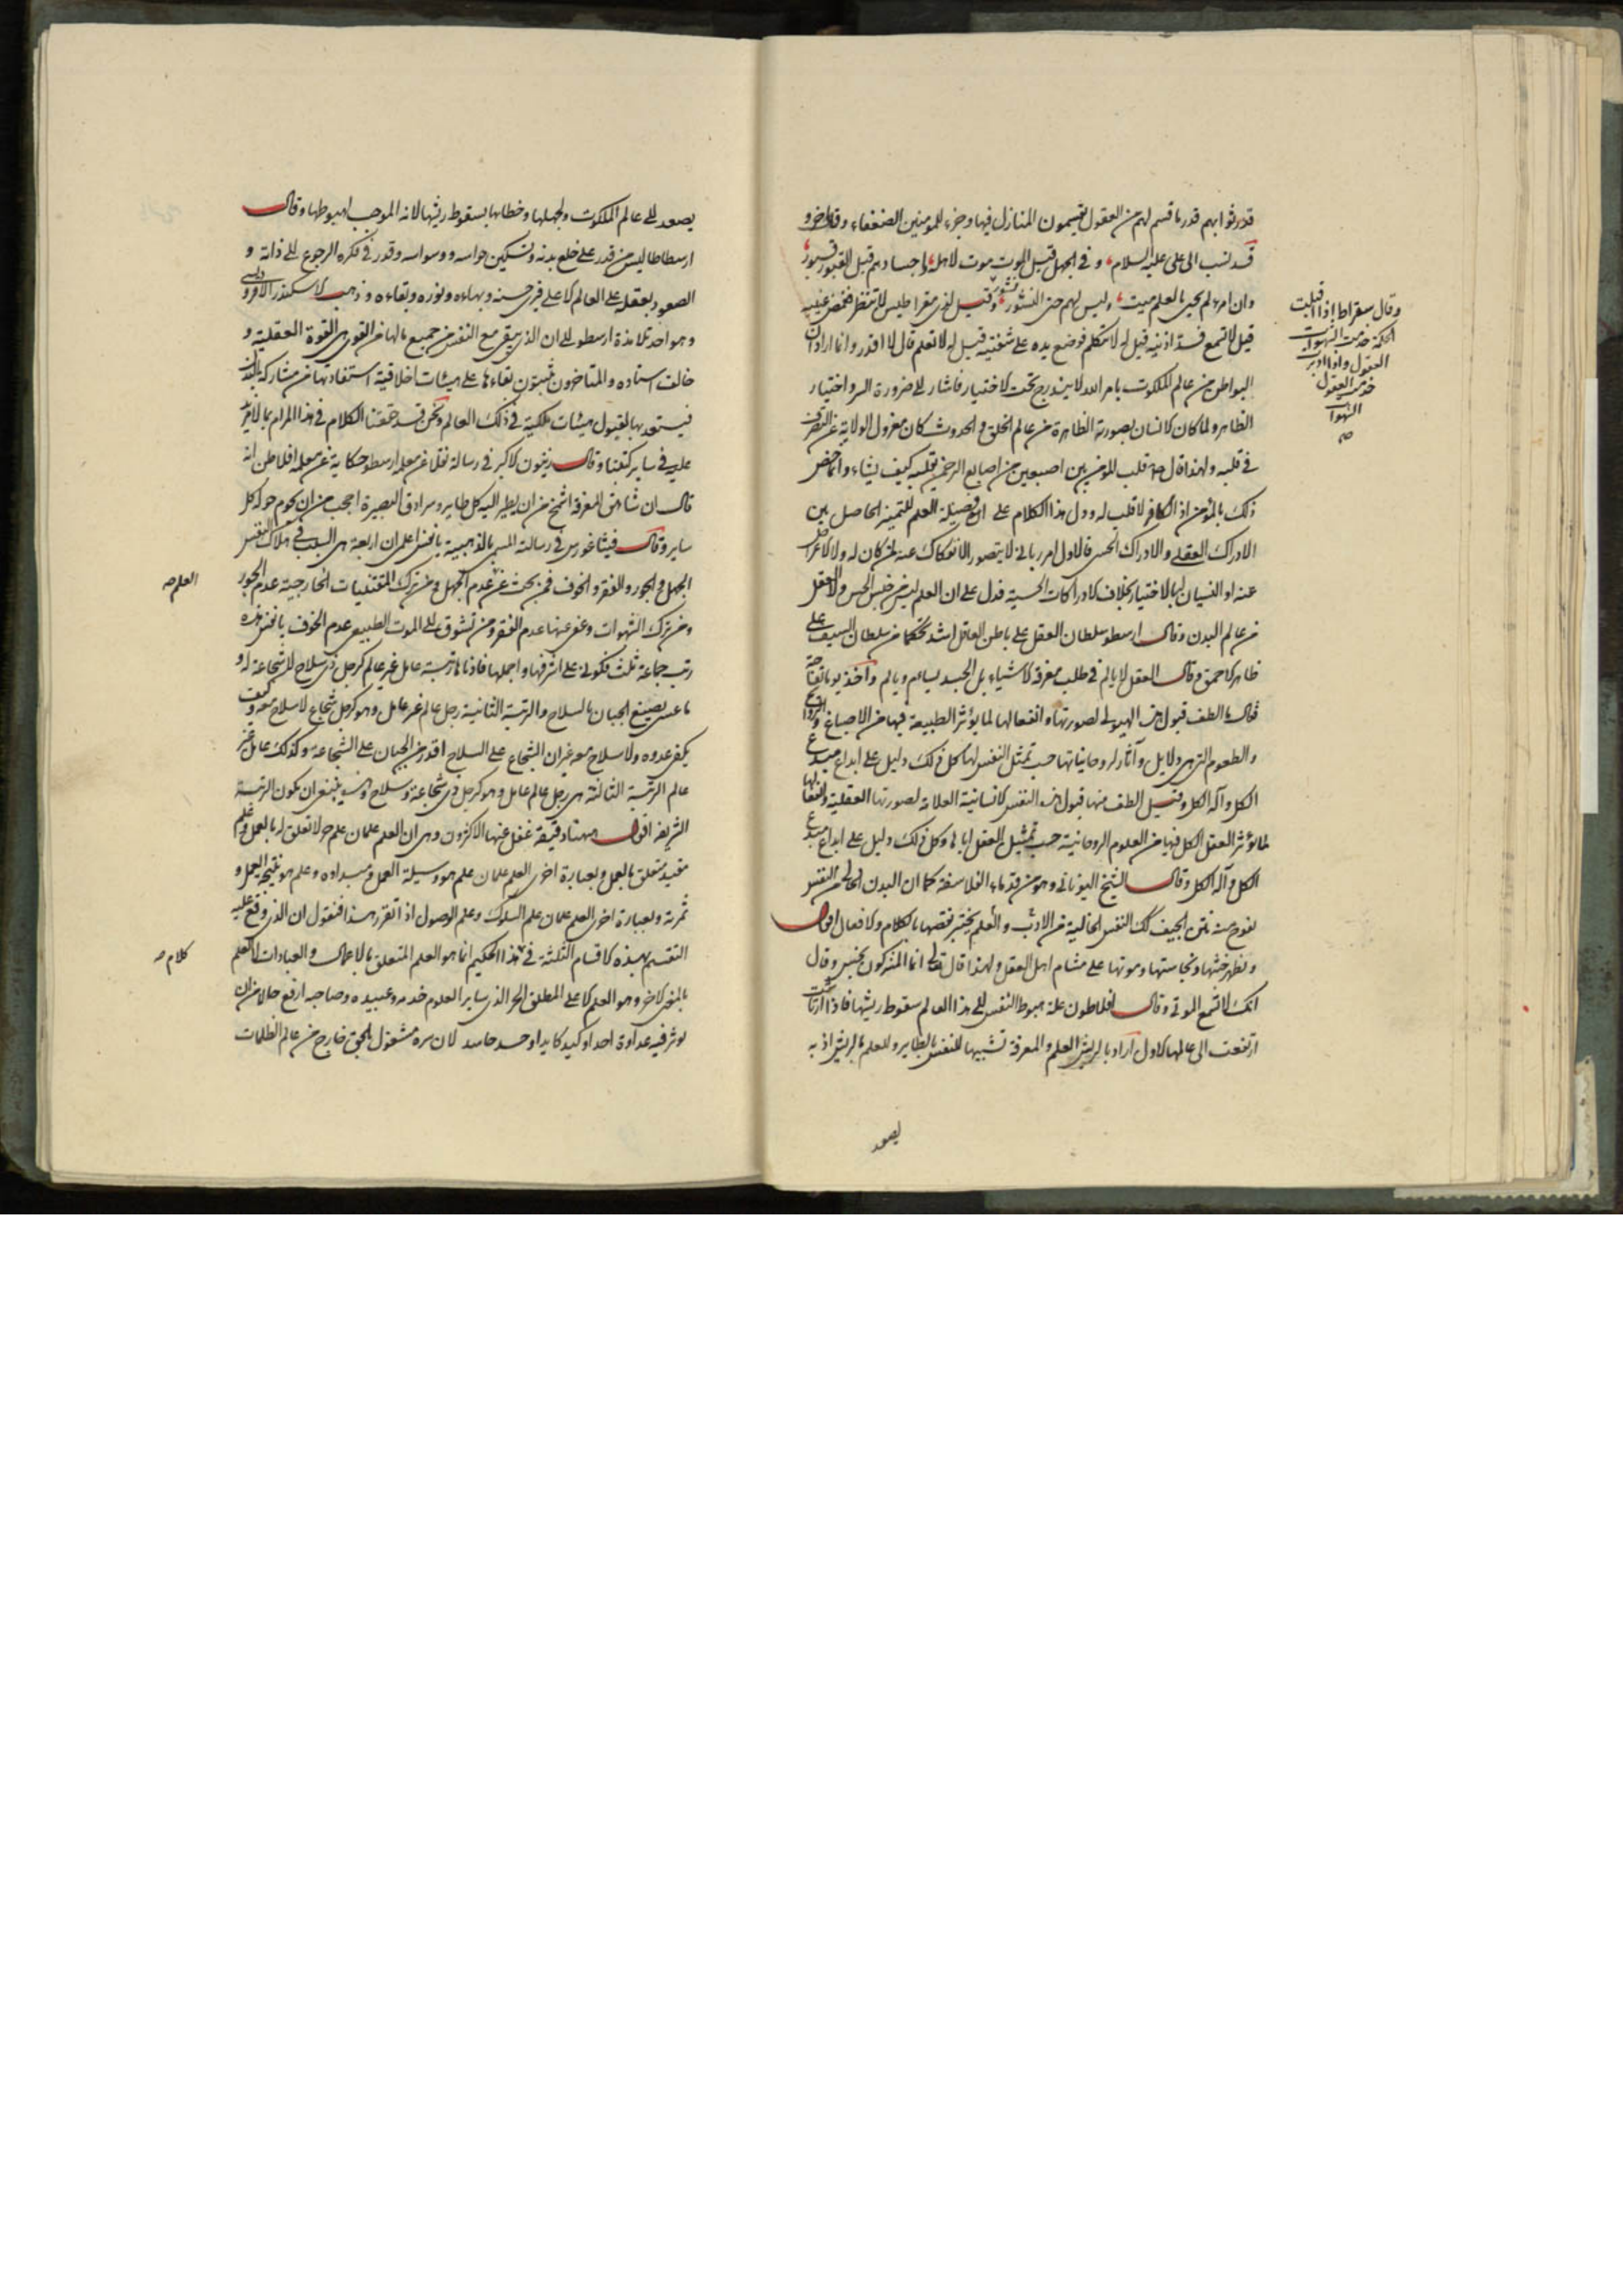 قدر ثوابهم قدر ما قسم لهم من العقول فيقيمون المنازل فيها وجزء للمومنين الضعفاء وقال اخر و
قد نسب الى على عليه السلام وفى الجهل قبل الموت موت لاهله واجسادهم قبل القبور قبور
وان امرء لم يحيى بالعلم ميت وليس لهم حتى النشور نشور وقيل لذيمقراطيس لا تنظر فغمض عينيه
قيل لا تسمع فسد اذنيه قيل له لا تتكلم فوضع يده على شفتيه قيل له لا تعلم قال لا اقدر وانما اراد ان
البواطن من عالم الملكوت بامر الله لا يندرج تحت الاختيار فاشار الى ضرورة السر واختيار
الظاهر ولما كان الانسان بصورته الظاهرة من عالم الخلق والحدوث كان معزول الولاية عن التصرف
فى قلبه ولهذا قال ص قلب المؤمن بين اصبعين من اصابع الرحمن يقلبه كيف يشاء وانما خص
ذلك بالمؤمن اذ الكافر لا قلب له ودل هذا الكلام على فضيلة العلم للتمييز الحاصل بين
الادراك العقلى والادراك الحسى فالاول امر ربانى لا يتصور الانفكاك عنه لمن كان له ولا الاعراض
عنه او النسيان له بالاختيار بخلاف الادراكات الحسية فدل على ان العلم ليس من جنس الحس ولا العقل
من عالم البدن وقال ارسطو سلطان العقل على باطن العاقل اشد تحكما من سلطان السيف على
ظاهر الاحمق وقال العقل لا يالم فى طلب معرفة الاشياء بل الجسد يسام ويالم واخذ يوما تفاحة
فقال ما الطف قبول هذه الهيولى لصورتها وانفعالها لما يؤثر الطبيعة فيها من الاصباغ والروايح
والطعوم التى هى دلايل وآثار لروحانياتها حسب تمثل النفس لها كل ذلك دليل على ابداع مبدع
الكل وآله الكل وقبل الطف منها قبول هذه النفس الانسانية العلامة لصورتها العقلية وانفعالها
لما يؤثر العقل الكل فيها من العلوم الروحانية حسب تمثيل العقل اياها وكل ذلك دليل على ابداع مبدع
الكل وآله الكل وقال الشيخ اليونانى وهو من قدماء الفلاسفة كما ان البدن الخالى من النفس
يفوح منه نتن الجيف كذلك النفس الخالية من الادب والعلم يختبر نقصها بالكلام والافعال اقول
ويظهر خبثها ونجاستها وموتها على مشام اهل العقل ولهذا قال تعالى انما المشركون نجس وقال
انك لا تسمع الموتى وقال افلاطون علة هبوط النفس الى هذا العالم سقوط ريشها فاذا ارتاشت
ارتفعت الى عالمها الاول اراد بالريش العلم والمعرفة تشبيها للنفس بالطاير وللعلم بالريش اذ به
يصعد
وقال سقراط اذا اقبلت
الحكمة خدمت الشهوات
العقول واذا ادبرت
خدمت العقول
الشهوات
صح
يصعد الى عالم الملكوت ولجهلها وخطائها بسقوط ريشها لانه الموجب لهبوطها وقال
ارسطاطاليس من قدر على خلع بدنه وتسكين حواسه ووسواسه وقدر فى فكره الرجوع الى ذاته و
الصعود بعقله الى العالم الاعلى فيرى حسنه وبهاءه ونوره وبقاءه وذهب الاسكندر الافروديسى
وهو احد تلامذة ارسطو الى ان الذى يبقى مع النفس من جميع مالها من القوى هى القوة العقلية و
خالف استاده والمتاخرون يثبتون بقاءها على هيئات اخلاقية استفادتها من مشاركة البدن
فيستعد بها لقبول هيئات ملكية فى ذلك العالم ونحن قد حققنا الكلام فى هذا المرام بما لا مزيد
عليه فى ساير كتبنا وقال زينون الاكبر فى رسالة نقلا عن معلمه ارسطو حكاية عن معلمه افلاطن انه
قال ان شاهق المعرفة اشمخ من ان يطير اليه كل طاير وسرادق البصيرة احجب من ان يحوم حوله كل
ساير وقال فيثاغورس فى رسالته المسمى بالذهبية يا نفس اعلم ان اربعة هى السبب فى هلاك النفس
الجهل والجور والفقر والخوف فمن بحث عن عدم الجهل ومن ترك المقتنيات الخارجية عدم الجور
ومن ترك الشهوات وعف عنها عدم الفقر ومن تشوق الى الموت الطبيعى عدم الخوف يا نفس هذه
رتب جماعة ثلث فكونى على اشرفها واجملها فادناها رتبة عامل غير عالم كرجل ذى سلاح لا شجاعة له و
ما عسى يصنع الجبان بالسلاح والرتبة الثانية رجل عالم غير عامل وهو كرجل شجاع لا سلاح معه وكيف
يكفى عدوه ولا سلاح معه غير ان الشجاع على السلاح اقدر من الجبان على الشجاعة وكذلك عامل غير
عالم الرتبة الثالثة هى رجل عالم عامل وهو كرجل ذى شجاعة وسلاح وينبغى ان يكون الرتبة
الشريفة اقول ههنا دقيقة غفل عنها الاكثرون وهى ان العلم علمان علم حر لا تعلق له بالعمل وعلم
مقيد متعلق بالعمل وبعبارة اخرى العلم علمان علم هو وسيلة العمل ومبدا‌ه وعلم هو نتيجة العمل و
ثمرته وبعبارة اخرى العلم علمان علم السلوك وعلم الوصول اذا تقرر هذا فنقول ان الذى وقع عليه
التقسيم بهذه الاقسام الثلثة فى هذا الحكيم انما هو العلم المتعلق بالاعمال والعبادات لا العلم
بالمعنى الاخر وهو العلم الاعلى المطلق الحر الذى ساير العلوم خدمه وعبيده وصاحبه ارفع حالا من ان
يؤثر فيه عداوة احد او كيد كايد او حسد حاسد لان سره مشغول بالحق خارج من عالم الظلمات
العلم صح
كلام صح